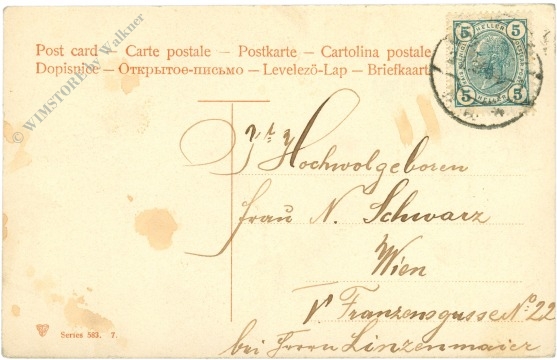 Post card – Carte postale – Postkarte – Cartolina postale
Dopisnice – Открытое-письмо – Levelező-Lap – Briefkaart
© WIMSTORE by Walkner
5 HELLER 5
5 HELLER 5
Hochwolgeboren
Frau N. Schwarz
Wien
Franzensgasse No 22
bei Herrn Linzenmaier
Series 583. 7.